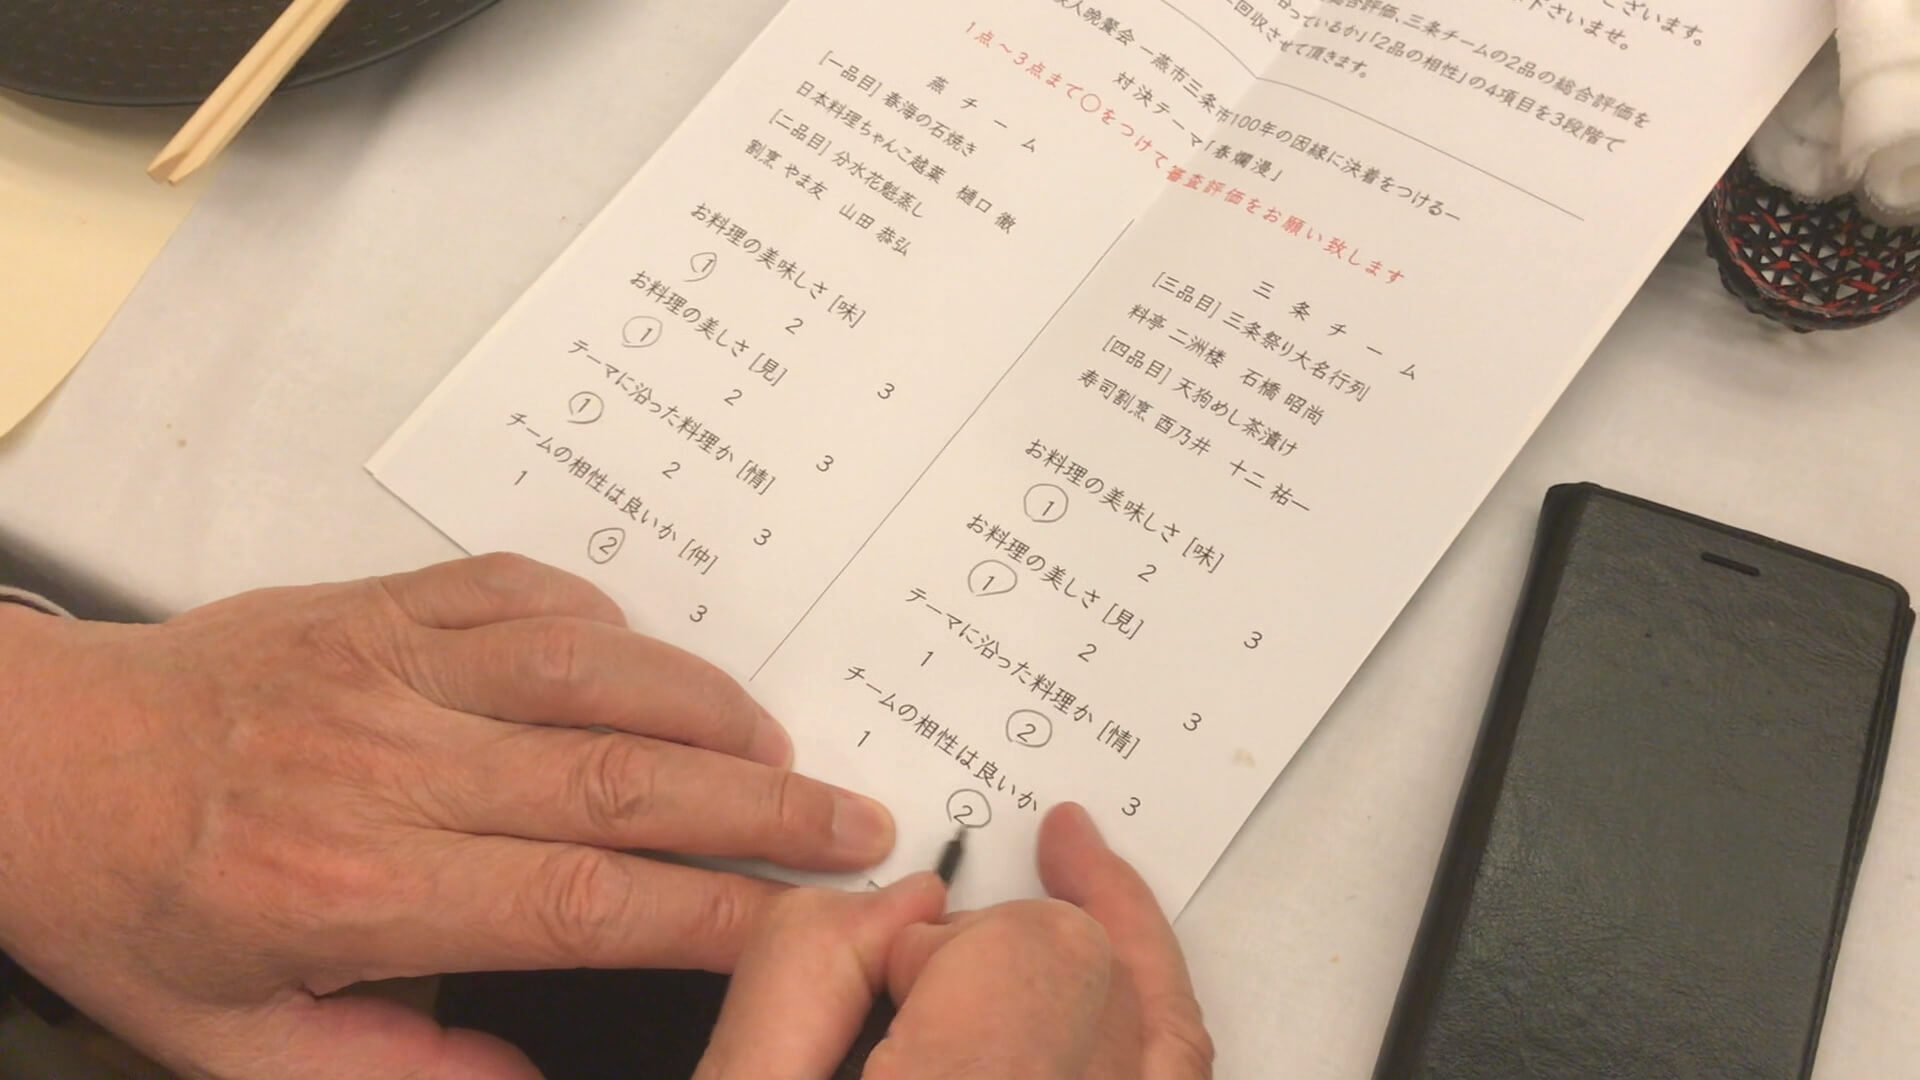 ございます。
下さいませ。
総合評価、三条チームの2品の総合評価を
沿っているか」「2品の相性」の4項目を3段階で
回収させて頂きます。
鉄人晩餐会 ー燕市三条市100年の因縁に決着をつけるー
対決テーマ「春爛漫」
1点～3点まで〇をつけて審査評価をお願い致します
燕チーム
[一品目] 春海の石焼き
日本料理ちゃんこ越葉 樋口 徹
[二品目] 分水花魁蒸し
割烹 やま友 山田 恭弘
お料理の美味しさ [味]
1 2 3
お料理の美しさ [見]
1 2 3
テーマに沿った料理か [情]
1 2 3
チームの相性は良いか [仲]
1 2 3
三条チーム
[三品目] 三条祭り大名行列
料亭 二洲楼 石橋 昭尚
[四品目] 天狗めし茶漬け
寿司割烹 酉乃井 十二 祐一
お料理の美味しさ [味]
1 2 3
お料理の美しさ [見]
1 2 3
テーマに沿った料理か [情]
1 2 3
チームの相性は良いか
1 2 3